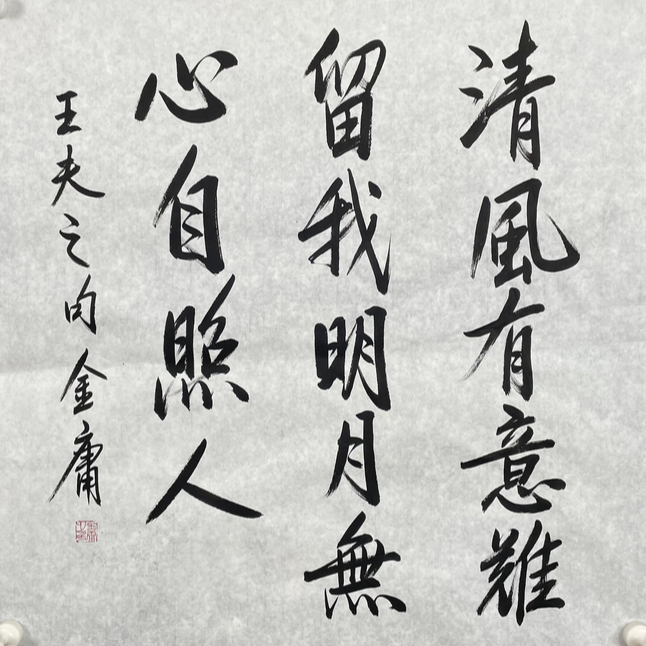 清風有意難
留我明月無
心自照人
王夫之句金庸